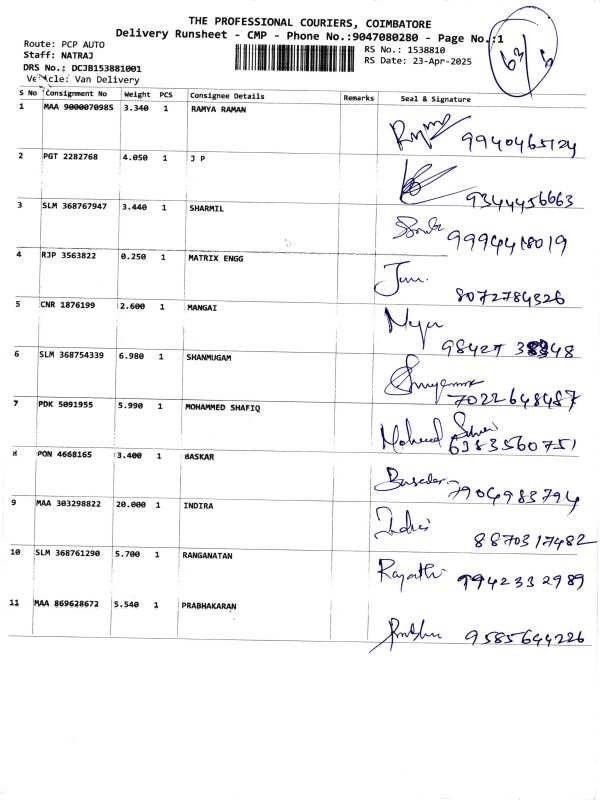 THE PROFESSIONAL COURIERS, COIMBATORE
Delivery Runsheet - CMP - Phone No.:9047080280 - Page No.:1
63/5
Route: PCP AUTO
RS No.: 1538810
Staff: NATRAJ
RS Date: 23-Apr-2025
DRS No.: DCJB153881001
Vehicle: Van Delivery
S No Consignment No Weight PCS Consignee Details Remarks Seal & Signature
1 MAA 9000070985 3.340 1 RAMYA RAMAN
9940465124
2 PGT 2282768 4.050 1 J P
9344456663
3 SLM 368767947 3.440 1 SHARMIL
9994418019
4 RJP 3563822 0.250 1 MATRIX ENGG
8072784326
5 CNR 1876199 2.600 1 MANGAI
98427
6 SLM 368754339 6.980 1 SHANMUGAM
7022648487
7 PDK 5091955 5.990 1 MOHAMMED SHAFIQ
6383560751
8 PON 4668165 3.400 1 BASKAR
7904983794
9 MAA 303298822 20.000 1 INDIRA
8870317482
10 SLM 368761290 5.700 1 RANGANATAN
9942332989
11 MAA 869628672 5.540 1 PRABHAKARAN
9585644226